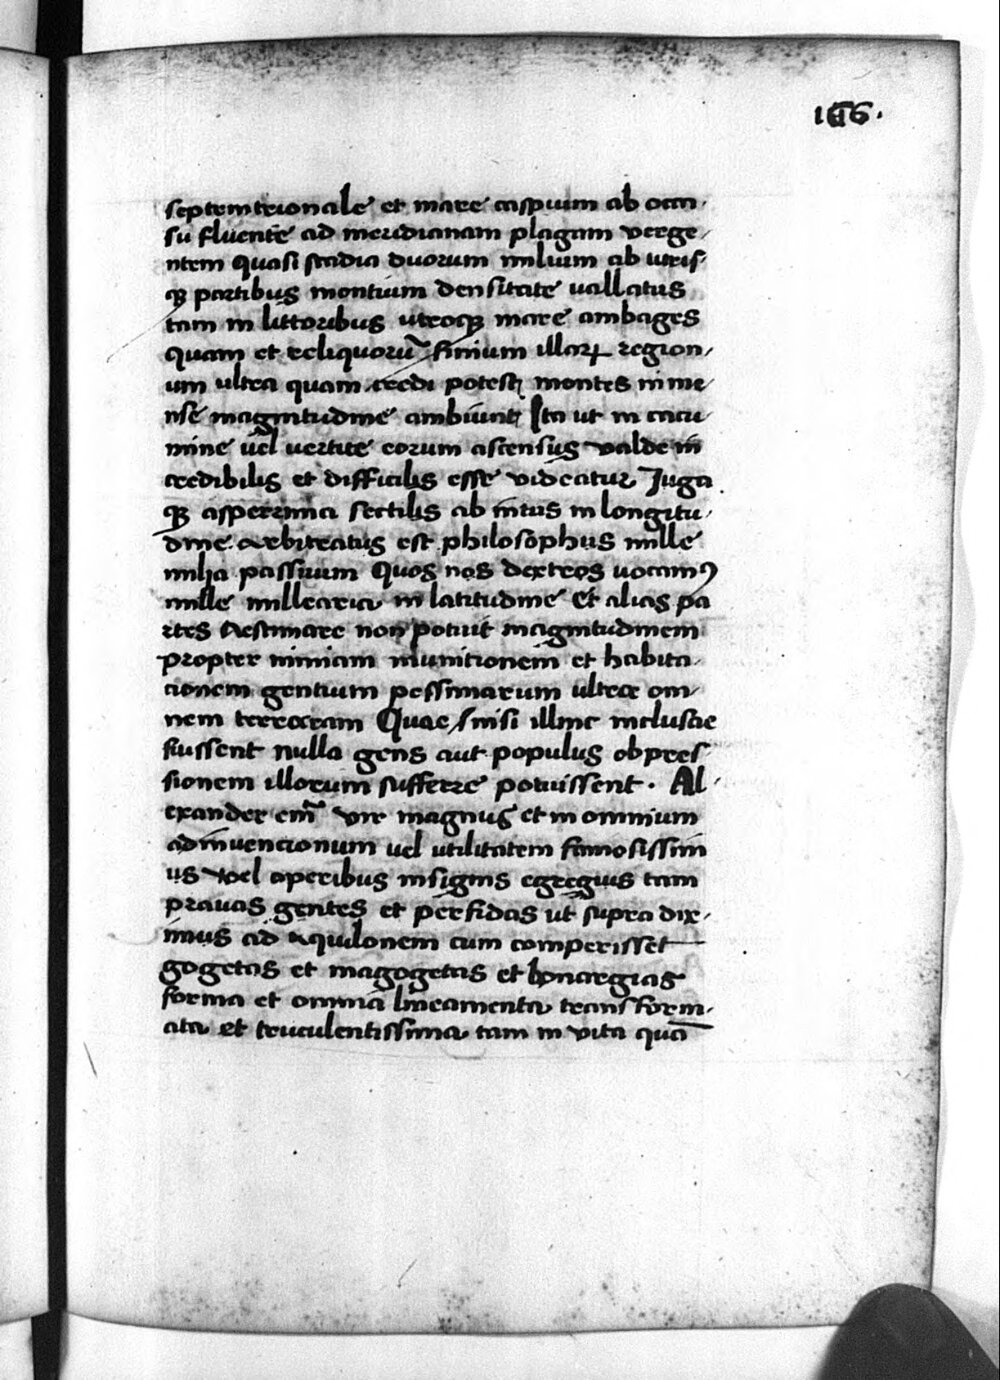 166.
septemtrionale et mare caspium ab occa-
su fluente ad meridianam plagam verge-
ntem quasi stadia duorum milium ab utris
q; partibus montium densitate vallatus
tam in littoribus utroq; mare ambages
quam et reliquorū finium illarꝝ region-
um ultra quam credi potest montes in me-
nse magnitudine ambiunt Ita ut in cacu-
mine uel vertice eorum ascensus valde in
credibilis et difficilis esse videatur Iuga
q; asperrima sectilis ab intus in longitu-
dine arbitratus est philosophus mille
milia passuum Quos nos dextros uocamꝰ
mille millearia in latitudine Et alias pa
rtes Aestimare non potuit magnitudinem
propter nimiam munitionem et habita-
cionem gentium pessimarum ultra om-
nem terroram Quae nisi illinc inclusae
fuissent nulla gens aut populus obpres-
sionem illorum sufferre potuissent. Al-
exander em̄ vir magnus et in omnium
adinvencionum uel utilitatem famosissim
us vel operibus insignis egregius tam
pravas gentes et perfidas ut supra dix-
imus ad aquilonem cum comperisset
gogetas et magogetas et honargias
forma et omnia lineamenta transform-
ata et truculentissima tam in vita quā